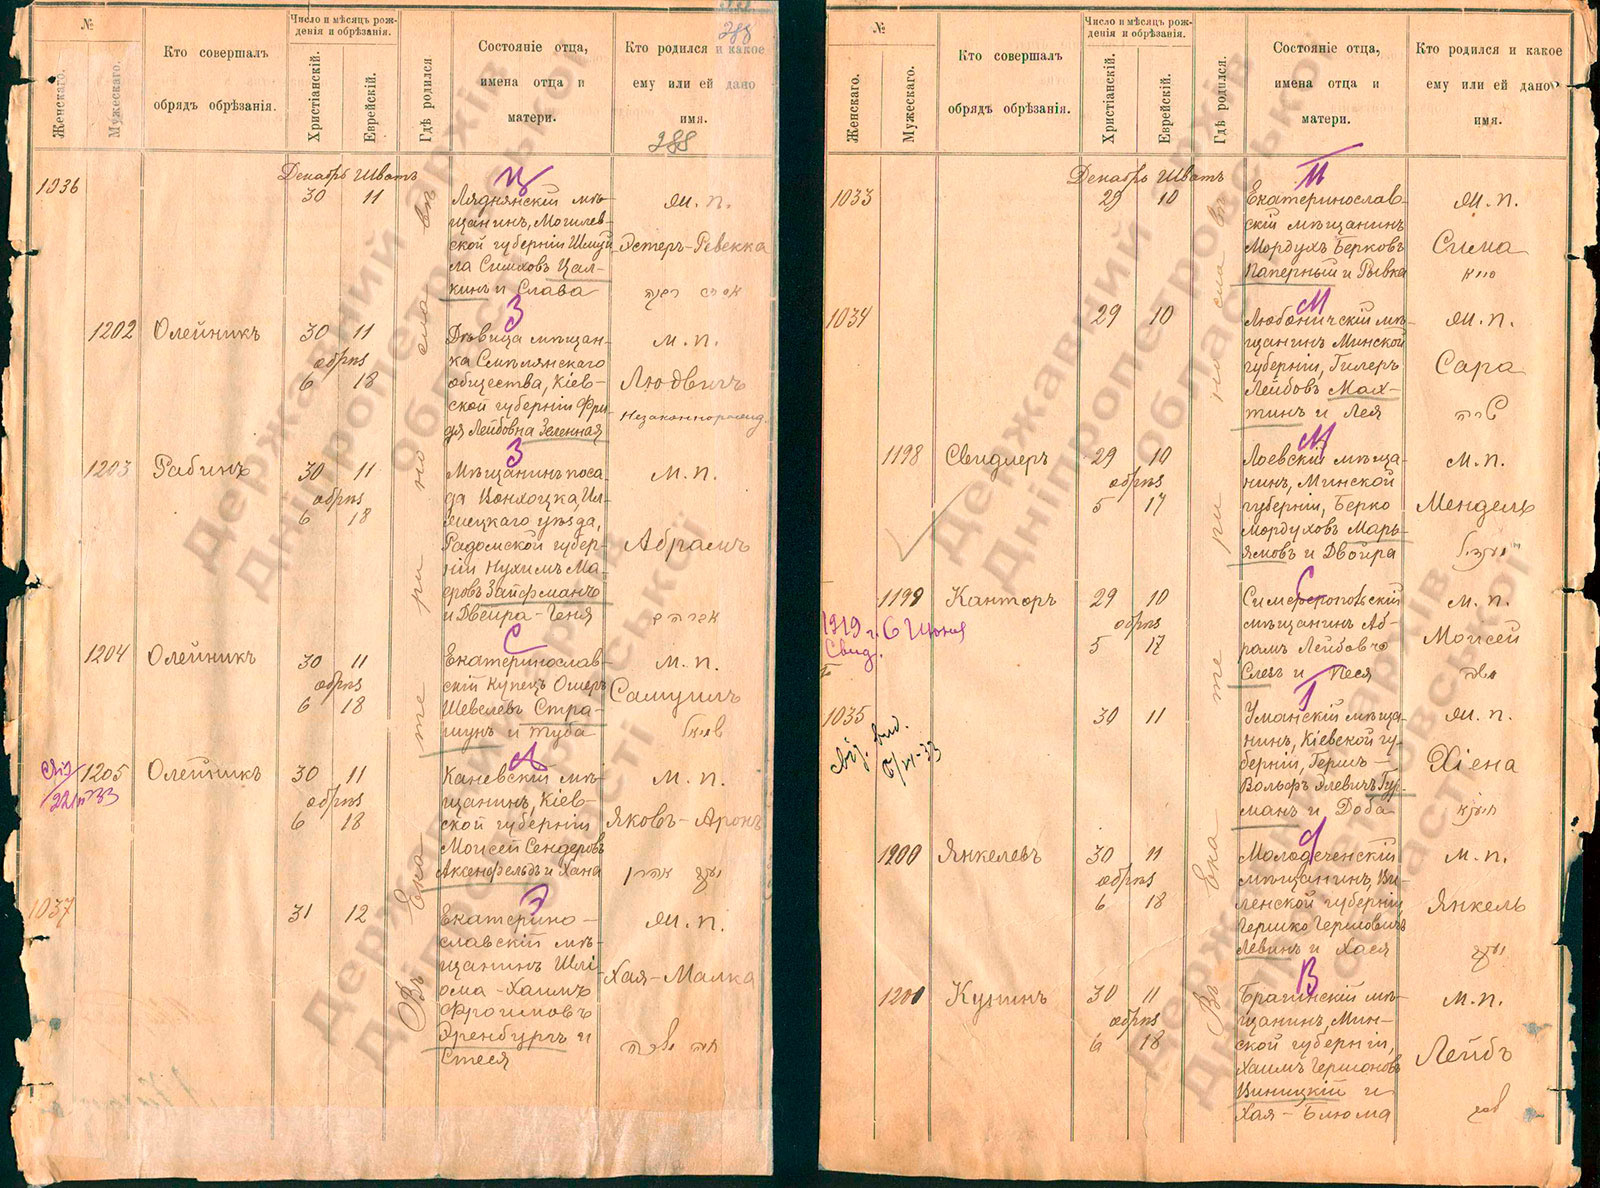 288
№
Женскаго.
Мужескаго.
Кто совершалъ
обрядъ обрѣзанія.
Число и мѣсяцъ рож-
денія и обрѣзанія.
Христіанскій.
Еврейскій.
Гдѣ родился
Состояніе отца,
имена отца и
матери.
Кто родился и какое
ему или ей дано
имя.
288
Декабрь Шватъ
1036
30 11
Ляднянскій мѣ-
щанинъ, Могилев-
ской губерніи Шмуй
ла Симховъ Цал-
кинъ и Слава
Ж. п.
Эстеръ-Ревекка
1202 Олейникъ
30 11
обрѣз
6 18
Дѣвица мѣщан-
ка Смѣлянскаго
общества, Кіев-
ской губерніи Фри-
дя Лейбовна Зеленная
м. п.
Людвигъ
Незаконнорожд.
1203 Рабинъ
30 11
обрѣз
6 18
Мѣщанинъ поса-
да Вонхоцка, Ил-
жецкаго уѣзда,
Радомской губер-
ніи Нухимъ Ма-
еровъ Зайфманъ
и Двейра-Геня
м. п.
Абрамъ
1204 Олейникъ
30 11
обрѣз
6 18
Екатеринослав-
скій купецъ Ошеръ
Шевелевъ Стра-
шунъ и Туба
м. п.
Самуилъ
1205 Олейникъ
30 11
обрѣз
6 18
Каневскій мѣ-
щанинъ, Кіев-
ской губерніи
Моисей Сендеровъ
Аксенфельдъ и Хана
м. п.
Яковъ-Аронъ
1037
31 12
Екатерино-
славскій мѣ-
щанинъ Шлі-
ома-Хаимъ
Фроимовъ
Эренбургъ и
Стеся
Ж. п.
Хая-Малка
Въ Екате ри но сла вѣ
№
Женскаго.
Мужескаго.
Кто совершалъ
обрядъ обрѣзанія.
Число и мѣсяцъ рож-
денія и обрѣзанія.
Христіанскій.
Еврейскій.
Гдѣ родился.
Состояніе отца,
имена отца и
матери.
Кто родился и какое
ему или ей дано
имя.
Декабрь Шватъ
1033
29 10
Екатеринослав-
скій мѣщанинъ
Мордухъ Берковъ
Паперный и Рывка
Ж. п.
Сима
1034
29 10
Любоничскій мѣ-
щанинъ Минской
губерніи, Гилеръ
Лейбовъ Мах-
тинъ и Лея
Ж. п.
Сара
שרה
1198 Свидлеръ
29 10
обрѣз
5 17
Лоевскій мѣща-
нинъ, Минской
губерніи, Берко
Мордуховъ Марь-
ямовъ и Двойра
м. п.
Мендель
1199 Канторъ
29 10
обрѣз
5 17
Симферопольскій
мѣщанинъ Аб-
рамъ Лейбовъ
Слезъ и Песя
м. п.
Моисей
משה
1919 г. 6 Июня
Свид.
1035
30 11
Уманскій мѣща-
нинъ, Кіевской гу-
берніи, Гершъ-
Вольфъ Элевичъ Гур-
манъ и Доба
Ж. п.
Хіена
1200 Янкелевъ
30 11
обрѣз
6 18
Молодеченскій
мѣщанинъ, Ви-
ленской губерніи,
Гершко Гершовичъ
Левинъ и Хася
м. п.
Янкель
1201 Кунинъ
30 11
обрѣз
6 18
Брагинскій мѣ-
щанинъ, Мин-
ской губерніи,
Хаимъ Гершоновъ
Виницкій и
Хая-Блюма
м. п.
Лейбъ
Въ Ека те ри но сла вѣ
Державний архів
Дніпропетровської
області